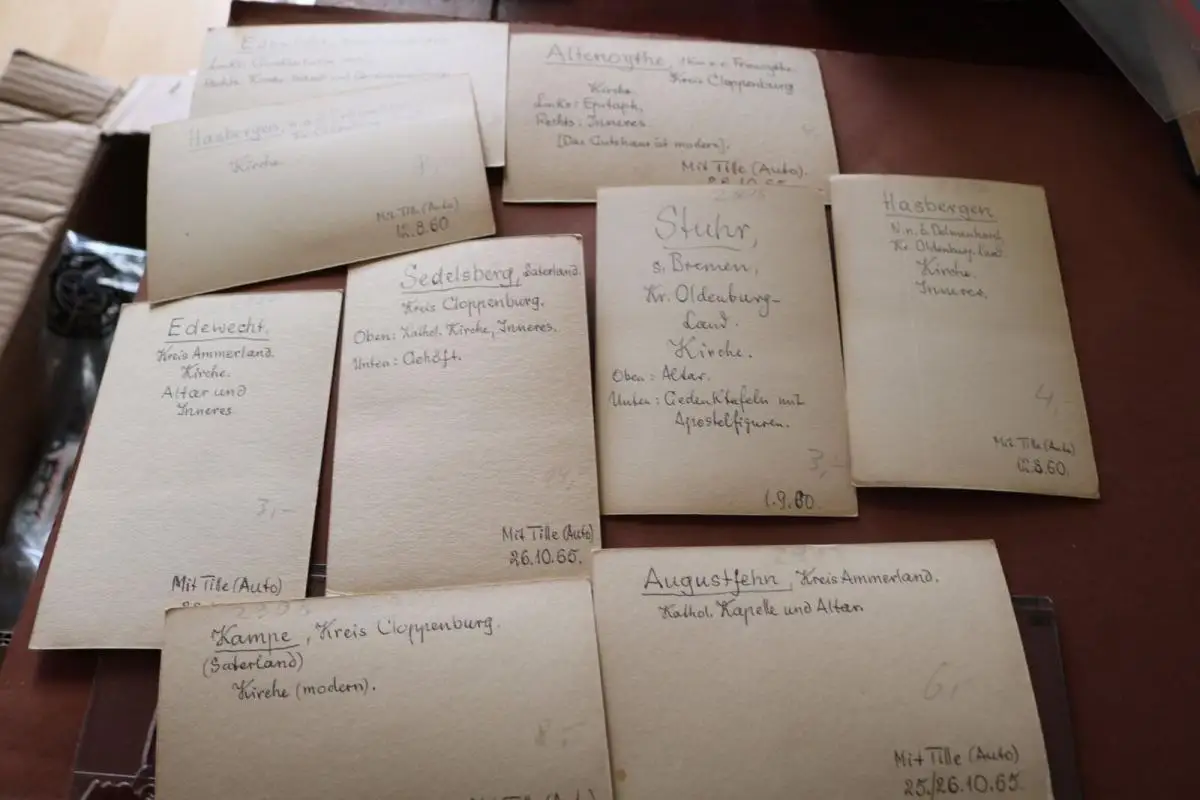 Altenoythe,
Kreis Cloppenburg
Kirche.
Links: Epitaph.
Rechts: Inneres.
[Das Gutshaus ist modern].
Mit Tille (Auto).
26.10.65
Hasbergen,
Kirche
Mit Tille (Auto)
12.8.60
Stuhr,
s. Bremen,
Kr. Oldenburg-
Land.
Kirche.
Oben: Altar.
Unten: Gedenktafeln mit
Apostelfiguren.
3,-
1.9.60
Hasbergen
Kr. Oldenburg-Land
Kirche.
Inneres.
4,-
Mit Tille (Auto)
12.8.60.
Sedelsberg, Saterland.
Kreis Cloppenburg.
Oben: Kathol. Kirche, Inneres.
Unten: Gehöft.
Mit Tille (Auto)
26.10.65.
Edewecht.
Kreis Ammerland.
Kirche.
Altar und
Inneres
3,-
Mit Tille (Auto)
Kampe, Kreis Cloppenburg.
(Saterland)
Kirche (modern).
8,-
Augustfehn, Kreis Ammerland.
Kathol. Kapelle und Altar
6,-
Mit Tille (Auto)
25./26.10.65.